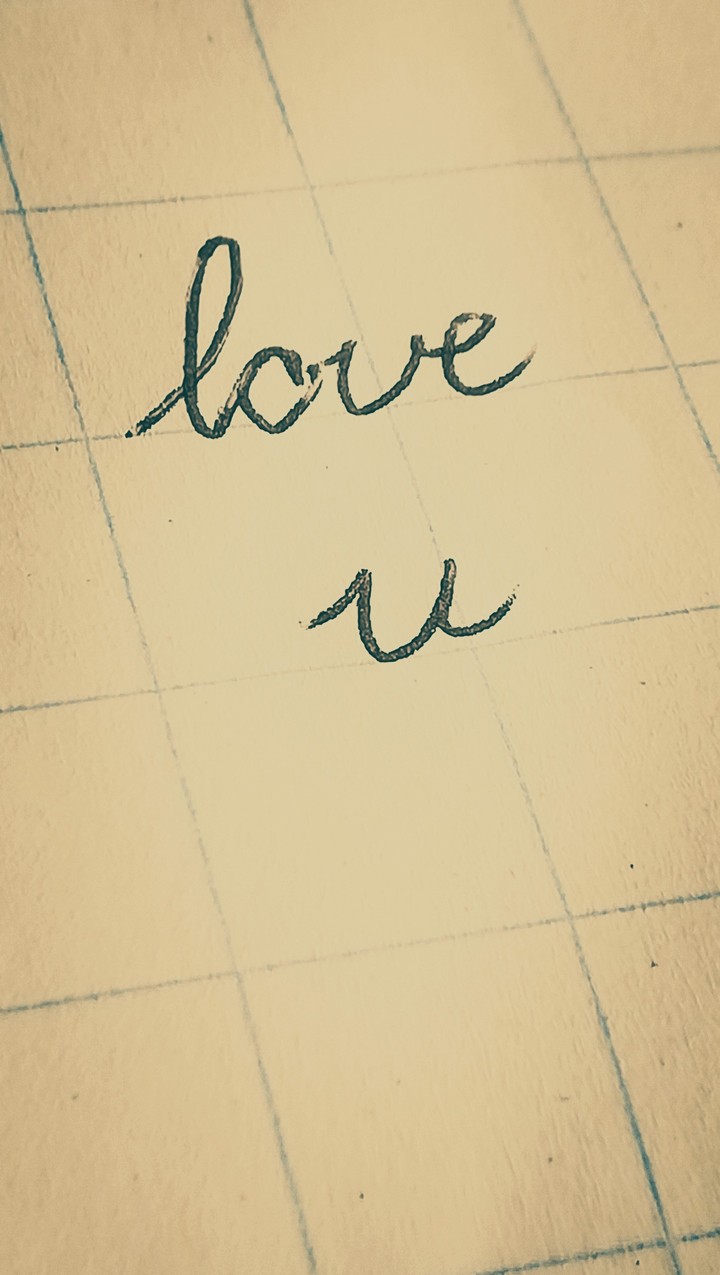 love
u